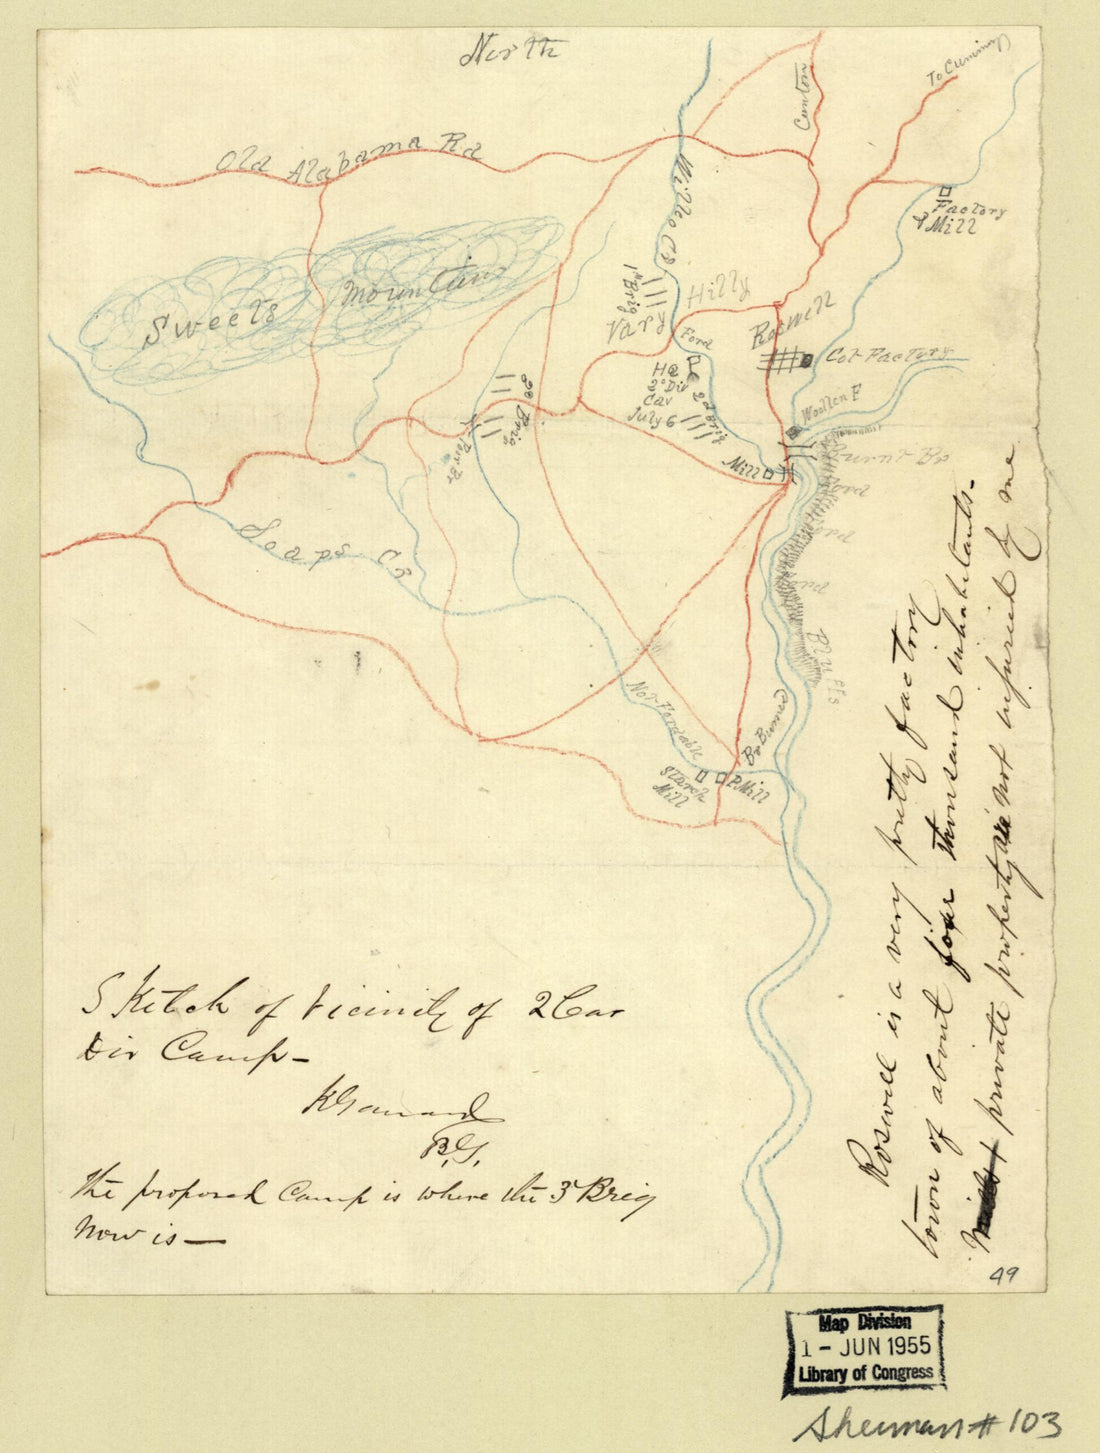 North
Canton
To Cuming
Old Alabama Rd
Willeo Cr
Factory
& Mill
Sweets Mountain
1st Brig
Hilly
Vary
Ford
Roswell
Hd
2d Div
Cav
July 6
2d Brig
Cot Factory
Woollen F
3d Brig
Mill
Burnt Br
Ford
Ford
Ford
Soaps Cr
Bluffs
Not Fordable
Br Burned
Starch
Mill
P. Mill
Sketch of Vicinity of 2 Cav
Div Camp—
K Garrard
B.G.
The proposed Camp is where the 3d Brig
now is—
Roswell is a very pretty factory
town of about four thousand inhabitants.
Mills & private property are not injured by me
49
Map Division
1 - JUN 1955
Library of Congress
Sherman # 103